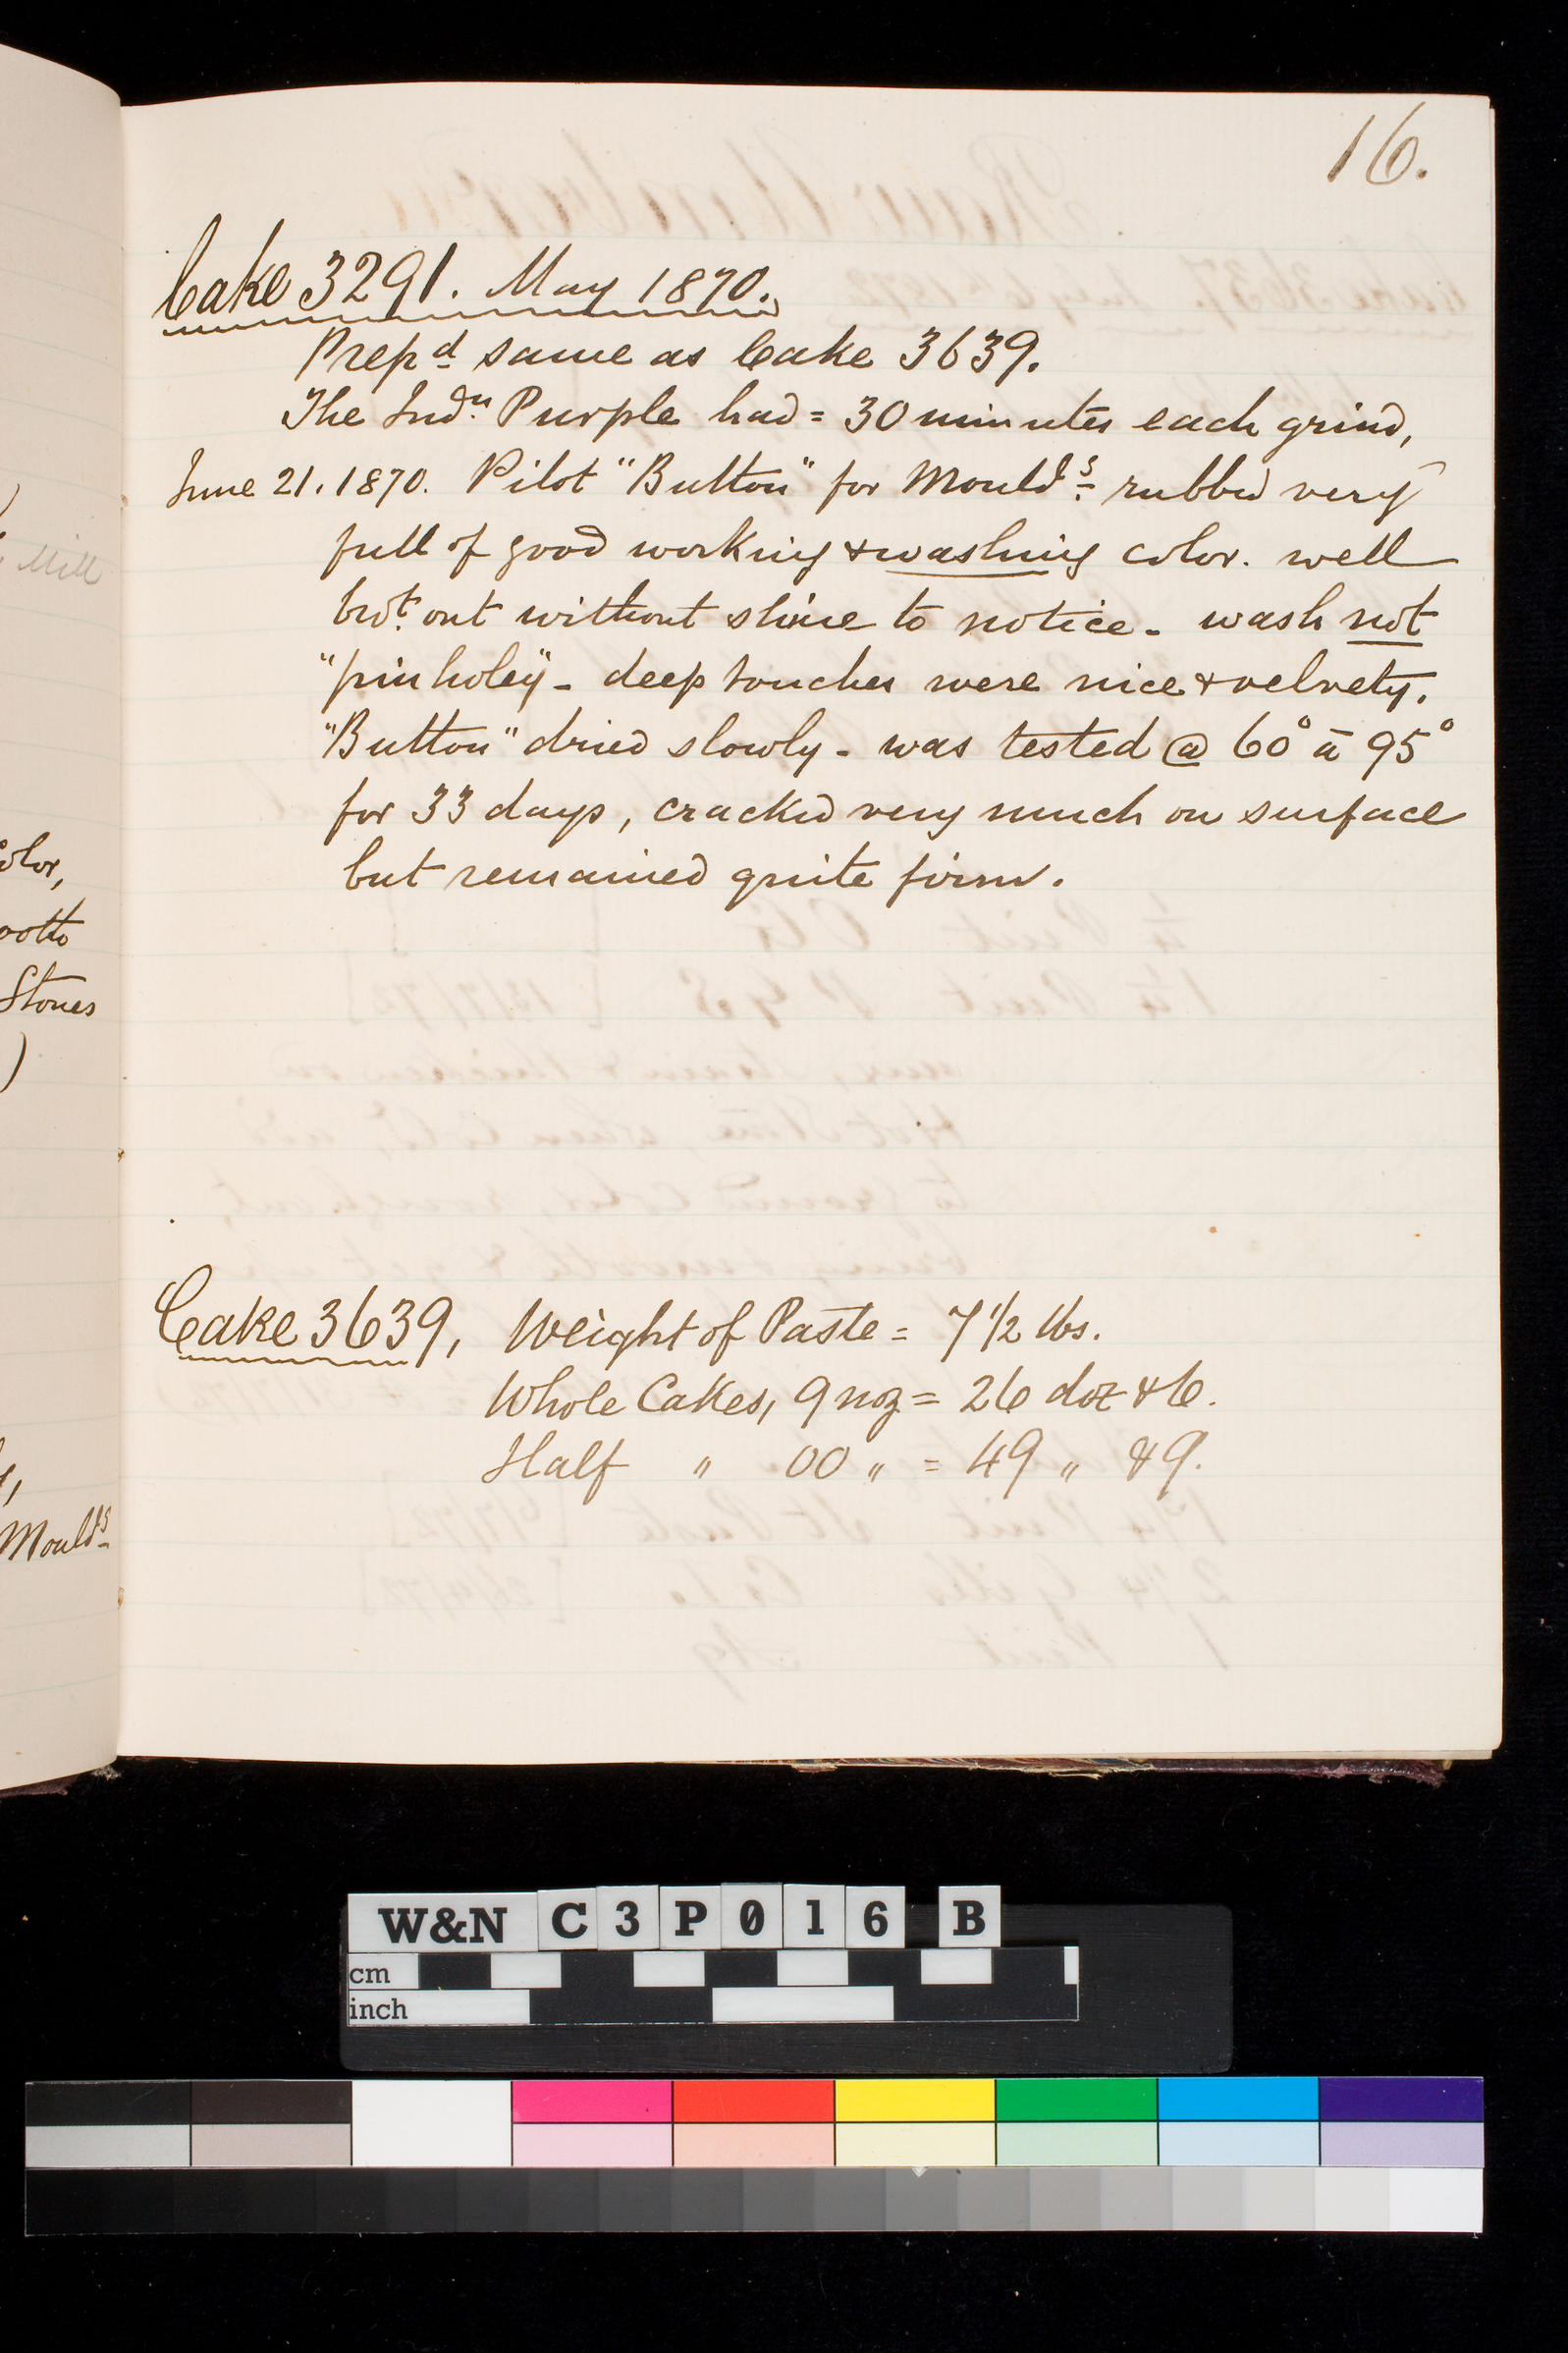 16.
Cake 3291. May 1870.
Prepd same as Cake 3639.
The Indn Purple had = 30 minutes each grind,
June 21. 1870. Pilot "Button" for Moulds rubbed very
full of good working & washing color. well
brot out without shine to notice - wash not
"pinholey" - deep touches were nice & velvety.
"Button" dried slowly - was tested @ 60° à 95°
for 33 days, cracked very much on surface
but remained quite firm.
Cake 3639, Weight of Paste = 7 1/2 lbs.
Whole Cakes, 9 noz = 26 doz & 6.
Half " 00 " = 49 " & 9.
Mill
olor,
ooth
Stones
)
Moulds
W&N C3P016 B
cm
inch